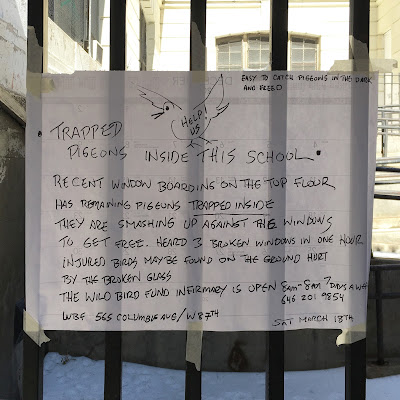 EASY TO CATCH PIGEONS IN THE DARK
AND FREED
HELP!
US
TRAPPED
PIGEONS INSIDE THIS SCHOOL
RECENT WINDOW BOARDING ON THE TOP FLOUR
HAS REMAINING PIGEONS TRAPPED INSIDE
THEY ARE SMASHING UP AGAINST THE WINDOWS
TO GET FREE. HEARD 3 BROKEN WINDOWS IN ONE HOUR
INJURED BIRDS MAYBE FOUND ON THE GROUND HURT
BY THE BROKEN GLASS
THE WILD BIRD FUND INFIRMARY IS OPEN 8AM-8PM 7 DAYS A WEEK
646 201 9854
WBF 565 COLUMBUS AVE/W 87TH
SAT MARCH 18TH